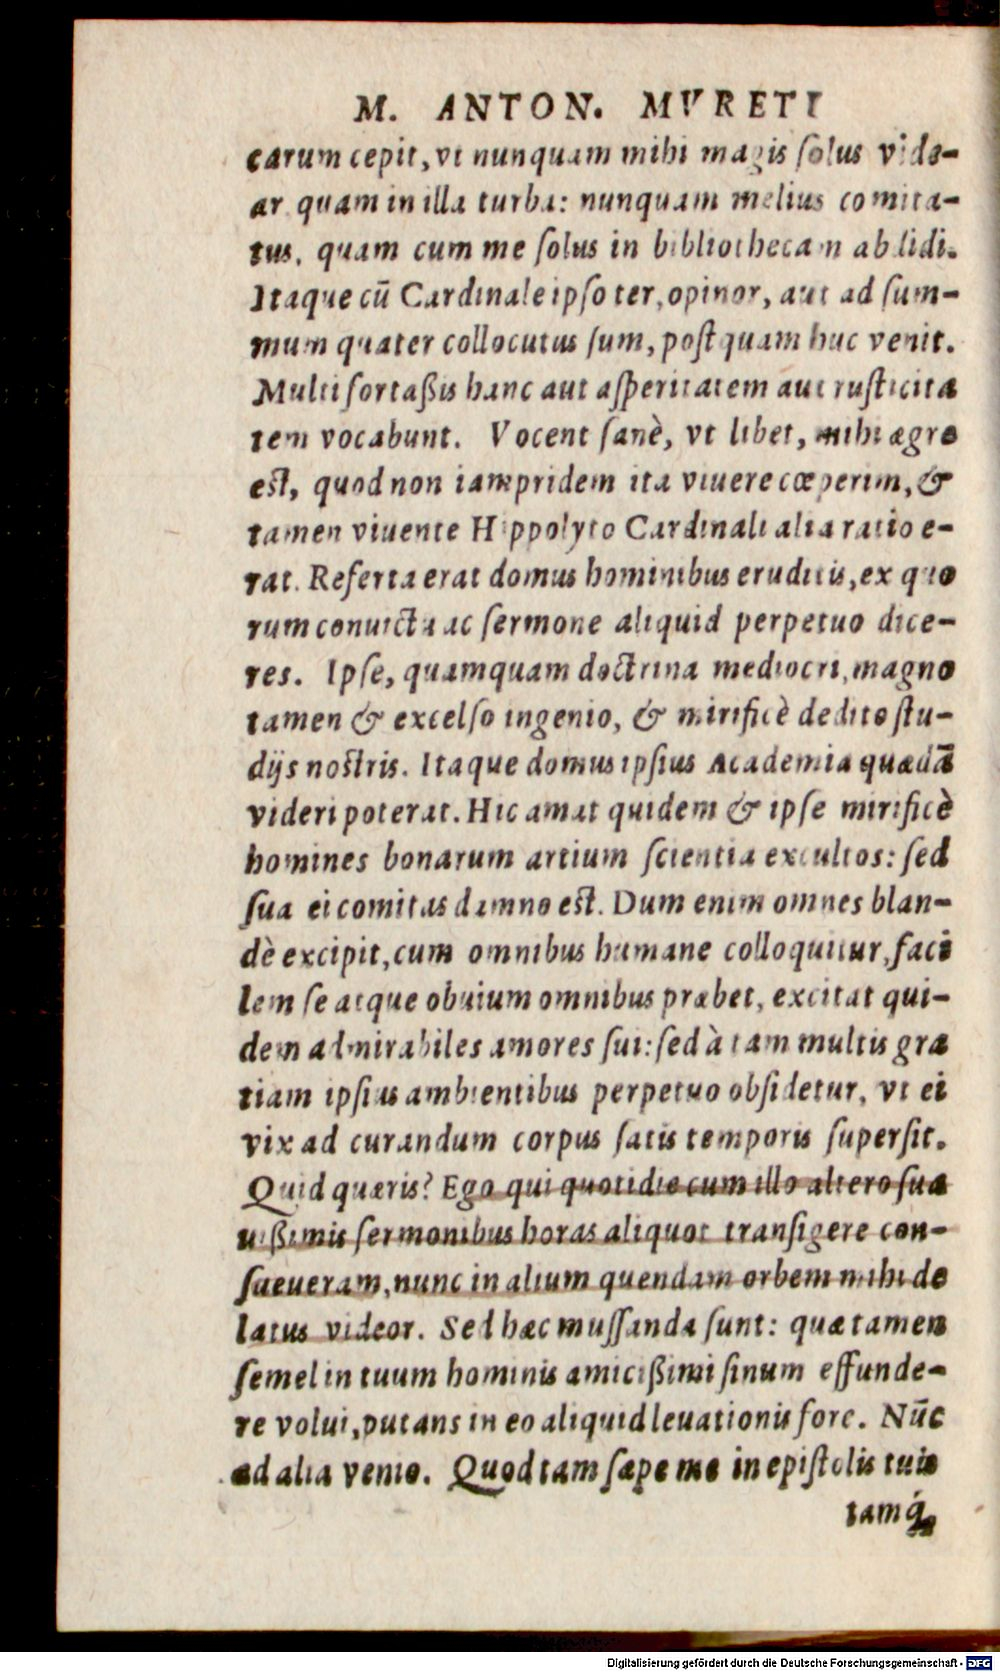 M. ANTON. MVRETI
carum cepit, vt nunquam mihi magis ſolus vide-
ar quam in illa turba: nunquam melius comita-
tus, quam cum me ſolus in bibliothecam abdidi.
Itaque cū Cardinale ipſo ter, opinor, aut ad ſum-
mum quater collocutus ſum, poſtquam huc venit.
Multi fortaßis hanc aut aſperitatem aut ruſticita
tem vocabunt. Vocent ſanè, vt libet, mihi ægre
eſt, quod non iampridem ita viuere cœperim, &
tamen viuente Hippolyto Cardinali alia ratio e-
rat. Referta erat domus hominibus eruditis, ex quo
rum conuictu ac ſermone aliquid perpetuo dice-
res. Ipſe, quamquam doctrina mediocri, magno
tamen & excelſo ingenio, & mirificè dedito ſtu-
dijs noſtris. Itaque domus ipſius Academia quædā
videri poterat. Hic amat quidem & ipſe mirificè
homines bonarum artium ſcientia excultos: ſed
ſua ei comitas damno eſt. Dum enim omnes blan-
dè excipit, cum omnibus humane colloquitur, faci
lem ſe atque obuium omnibus præbet, excitat qui-
dem admirabiles amores ſui: ſed à tam multis gra
tiam ipſius ambientibus perpetuo obſidetur, vt ei
vix ad curandum corpus ſatis temporis ſuperſit.
Quid quæris? Ego qui quotidie cum illo altero ſua
uißimis ſermonibus horas aliquot tranſigere con-
ſueueram, nunc in alium quendam orbem mihi de
latus videor. Sed hæc muſſanda ſunt: quæ tamen
ſemel in tuum hominis amicißimi ſinum effunde-
re volui, putans in eo aliquid leuationis fore. Nūc
ad alia venio. Quod tam ſæpe me in epiſtolis tuis
tamq́;
Digitalisierung gefördert durch die Deutsche Forschungsgemeinschaft - DFG